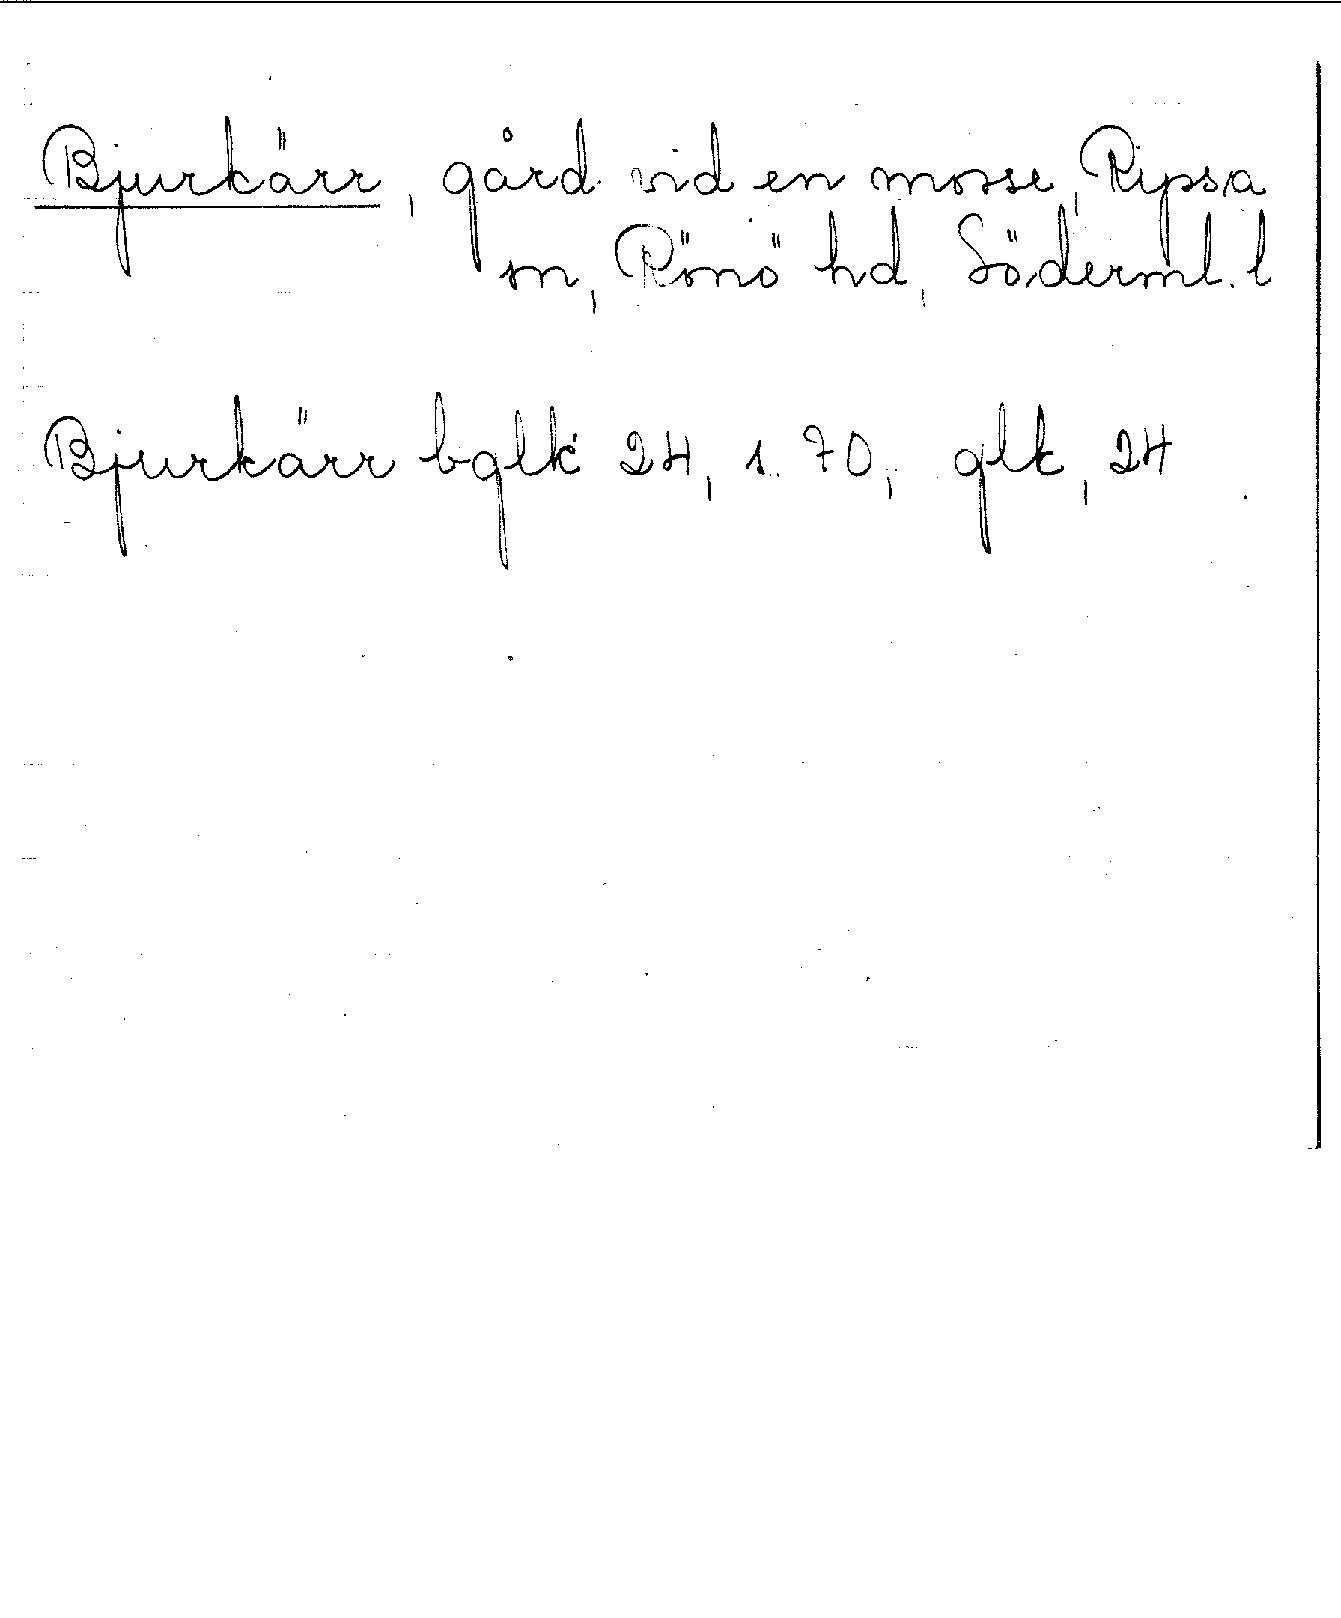 Bjurkärr, gård vid en mosse, Ripsa
sn, Rönö hd, Söderml. l
Bjurkärr bglk 24, s. 70; glk, 24